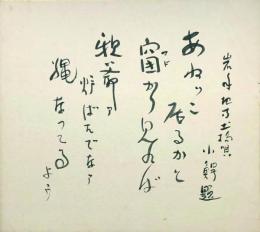 岩手地方土搗唄
小舞題
あねっこ
居るかと
窗から見れば
親爺ァ
炉ばたでなァ
縄なってる
よう